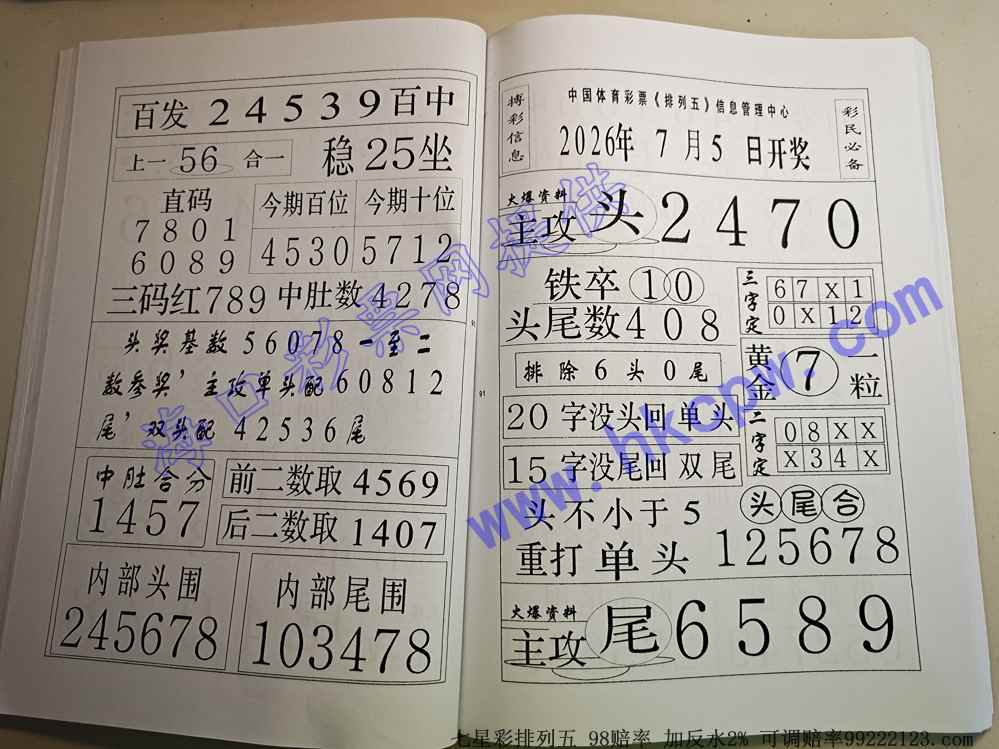 百发 24539 百中
上一 56 合一 稳25坐
直码
7801
6089
今期百位 今期十位
4530 5712
三码红789 中肚数4278
头奖基数 56078 一至二
数参奖，主攻单头配 60812
尾，双头配 42536尾
中肚合分
1457
前二数取 4569
后二数取 1407
内部头围
245678
内部尾围
103478
91
搏彩信息
中国体育彩票《排列五》信息管理中心
2026年 7月5日开奖
彩民必备
火爆资料
主攻 头 2470
铁卒 10
头尾数 408
排除 6 头 0 尾
三字定
67X1
0X12
黄金 7 一粒
20 字没头回 单头
15 字没尾回 双尾
二字定
08XX
X34X
头不小于5
头尾合
重打 单头 125678
火爆资料
主攻 尾 6589
海口彩票网提供
www.hkcpw.com
七星彩排列五 98赔率 加反水2% 可调赔率99222123.com